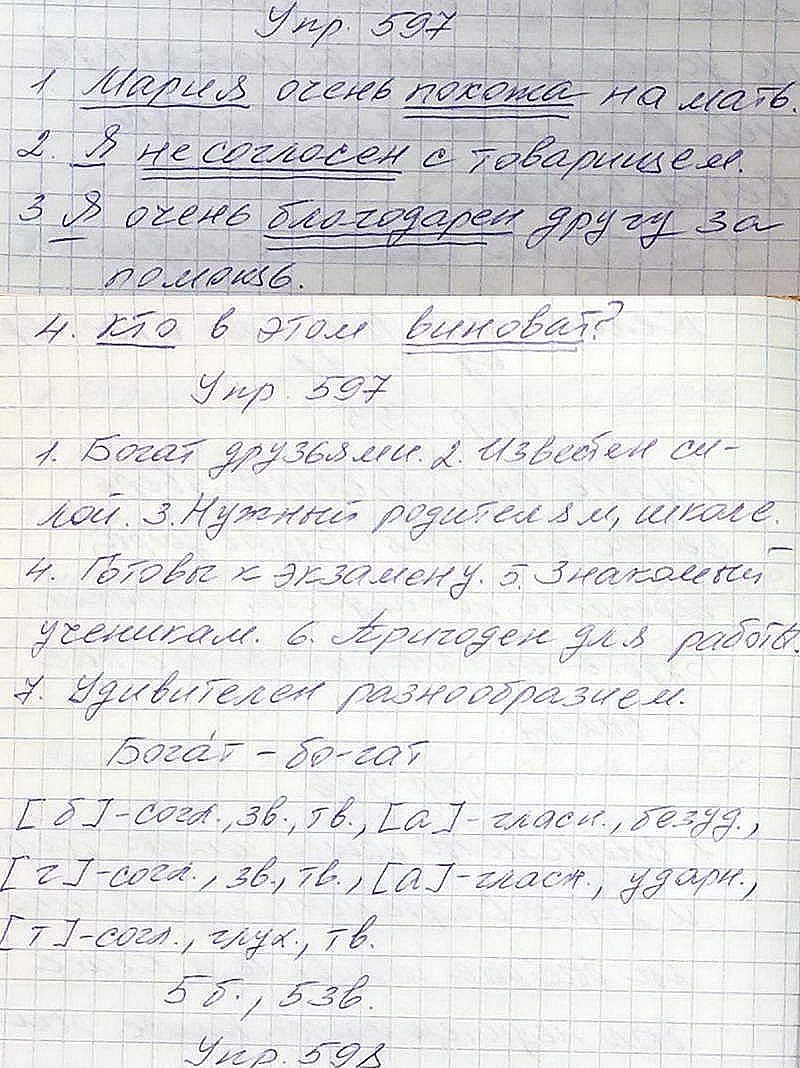 Упр. 597
1 Мария очень похожа на мать.
2. Я не согласен с товарищем.
3 Я очень благодарен другу за
помощь.
4. Кто в этом виноват?
Упр. 597
1. Богат друзьями. 2. Известен си-
лой. 3. Нужный родителям, школе.
4. Готовы к экзамену. 5. Знакомый
ученикам. 6. Пригоден для работы.
7. Удивителен разнообразием.
Бога́т – бо-гат
[б]-согл., зв., тв., [а]-гласн., безуд.,
[г]-согл., зв., тв., [а]-гласн., ударн.,
[т]-согл., глух., тв.
5 б., 5 зв.
Упр. 598